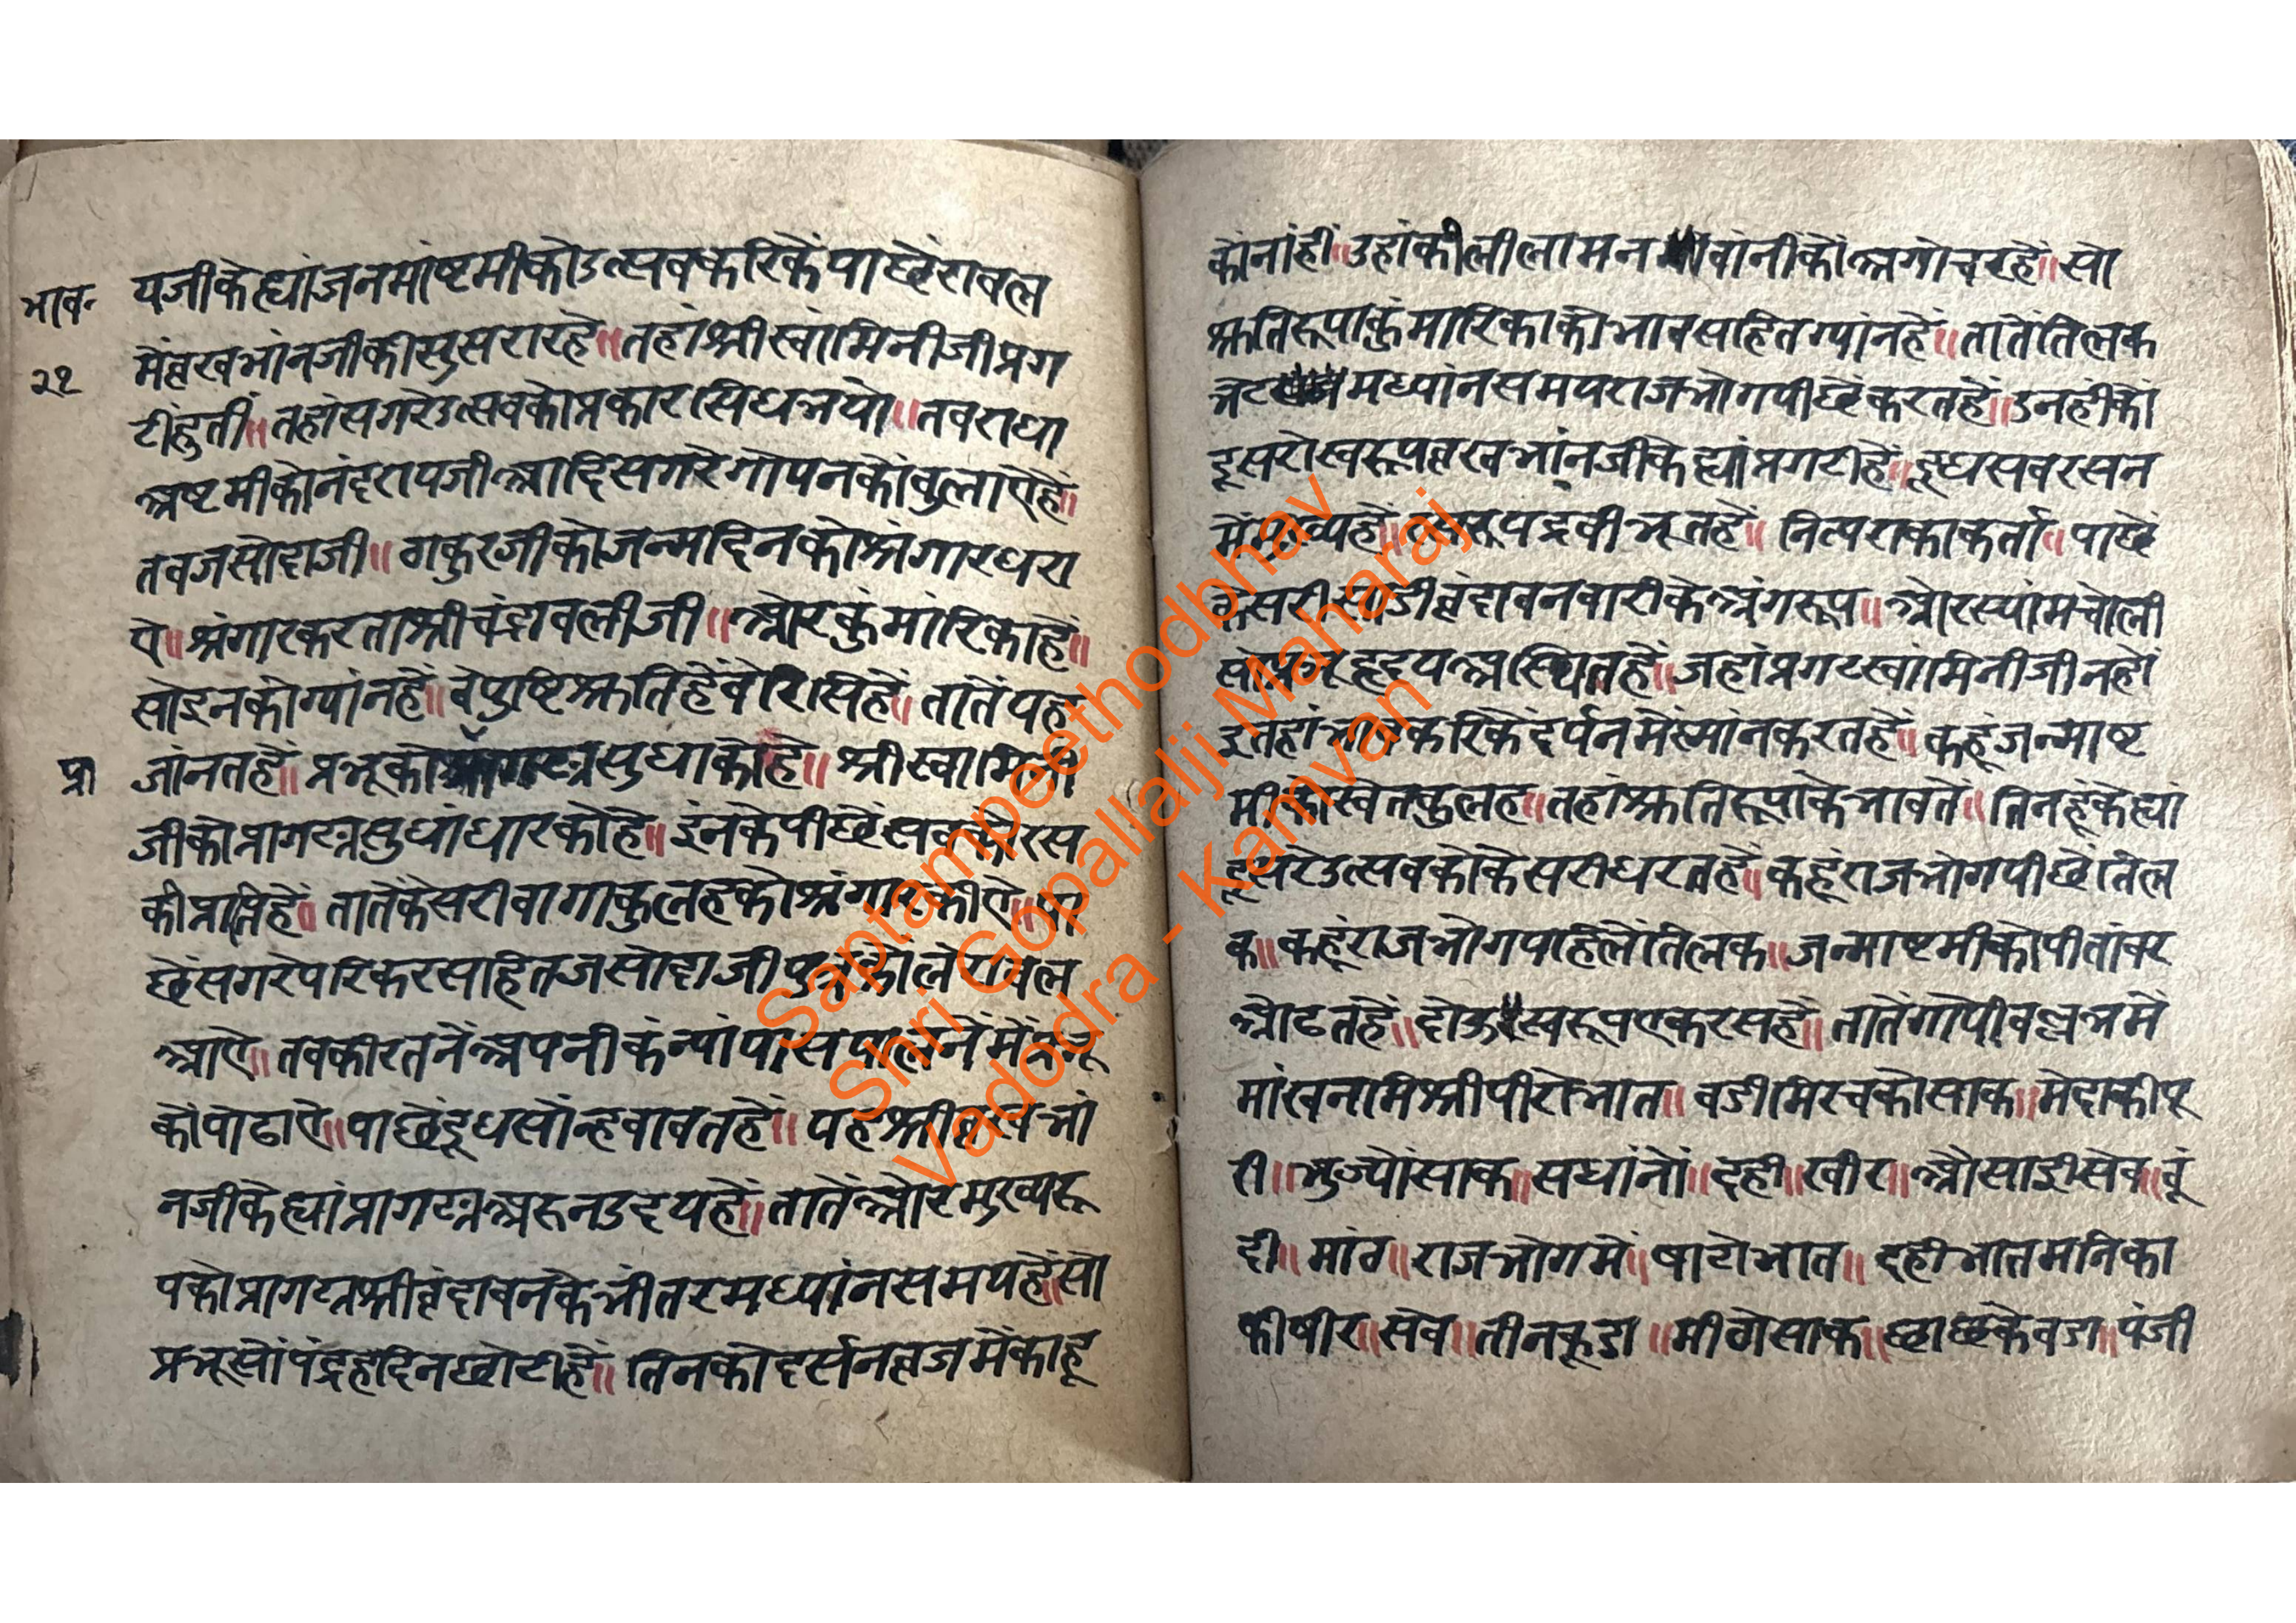 भाव॰
२१
यजीके ह्यां जनमांष्टमीको उत्सव करिकें पाछें रावल
में व्रखभांनजीकी सुसरार हे॥ तहां श्रीस्वांमिनीजी प्रग
टीं हुतीं॥ तहां सगरे उत्सवको प्रकार सिध भयो॥ तव राधा
अष्टमीको नंदरायजी आदि सगरे गोपनकों वुलाऐ हें॥
तव जसोदाजी॥ ठाकुरजीको जन्मदिनको श्रंगार धरा
ये॥ श्रंगार करता श्रीचंद्रावलीजी॥ ओर कुंमांरिका हें॥
सो इनको ग्यांन हें॥ वे पुष्टि श्रुति हें वे रिसि हें॥ तातें यह
प्रा
जांनत हें॥ प्रभूको सुधाको हे॥ श्रीस्वामिनी
जीको प्रागट्य सुधांधारको हे॥ इंनके पीछें सवकों रस
की प्राप्ति हे॥ तातें केसरी वागा कुलहको श्रंगार कीऐ॥ पा
छें सगरे परिकर सहित जसोदाजी पुत्रकों ले रावल
आऐ॥ तव कीरतनें अपनी कंन्यां पास पालनेंमें प्रभू
कों पोढाऐ॥ पाछें दूधसों न्हवावत हें॥ यह श्रीव्रखभां
नजीके ह्यां प्रागट्य अरुन उदय हें॥ तातें ओर मुख्य रू
पको प्रागट्य श्रीव्रंदावनके भीतर मध्यांन समय हें॥ सो
प्रभूसों पंद्रह दिन छोटी हें॥ तिनको दर्सन व्रजमें काहू
कों नांहीं॥ उहांकी लीला मन वांनींकों अगोचर हें॥ सो
श्रुतिरूपा कुंमारिकाको भाव सहित ग्यांन हें॥ तातें तिलक
भेट मध्यांन समय राजभोग पीछें करत हें॥ उनहींको
दूसरो स्वरूप व्रखभांनजीके ह्यां प्रगटी हें॥ दूध सव रसन
में मुख्य हें॥ रसरूप द्रवीभूत हें॥ नित्य राकाकर्ता॥ पाछें
केसरी साडी व्रंदावन वारीके अंग रूप॥ ओर स्यांम चोली
सो प्रभू हृदय अस्थित हें॥ जहां प्रगट स्वांमिनीजी न हों
इ तहां भाव करिकें दर्पनमें स्मांन करत हें॥ कहूं जन्माष्ट
मीको स्वेत कुलह॥ तहां श्रुतिरूपाके भावतें॥ तिनहूंके ह्यां
दूसरे उत्सवको केसरी धरत हें॥ कहूं राजभोग पीछें तिल
क॥ कहूं राजभोग पहिलें तिलक॥ जन्माष्टमीको पीतांवर
ओढत हें॥ दोऊ स्वरूप एकरस हें॥ तातें गोपीवल्लभमें
मांखन मिश्री पीरो भात॥ वडी मिरचको साक॥ मेदाकी पू
री॥ भुज्यों साक॥ सधांनों॥ दही॥ खीर॥ ओसाई सेव॥ वूं
दी॥ मांठ॥ राजभोगमें॥ षाटो भात॥ दही भात मनिका
की षीर॥ सेव॥ तीनकूडा॥ मीठो साक॥ छाछके वडा॥ पंजी
Saptampeethodbhav
Shri Gopallalji Maharaj
Vadodra - Kamvan